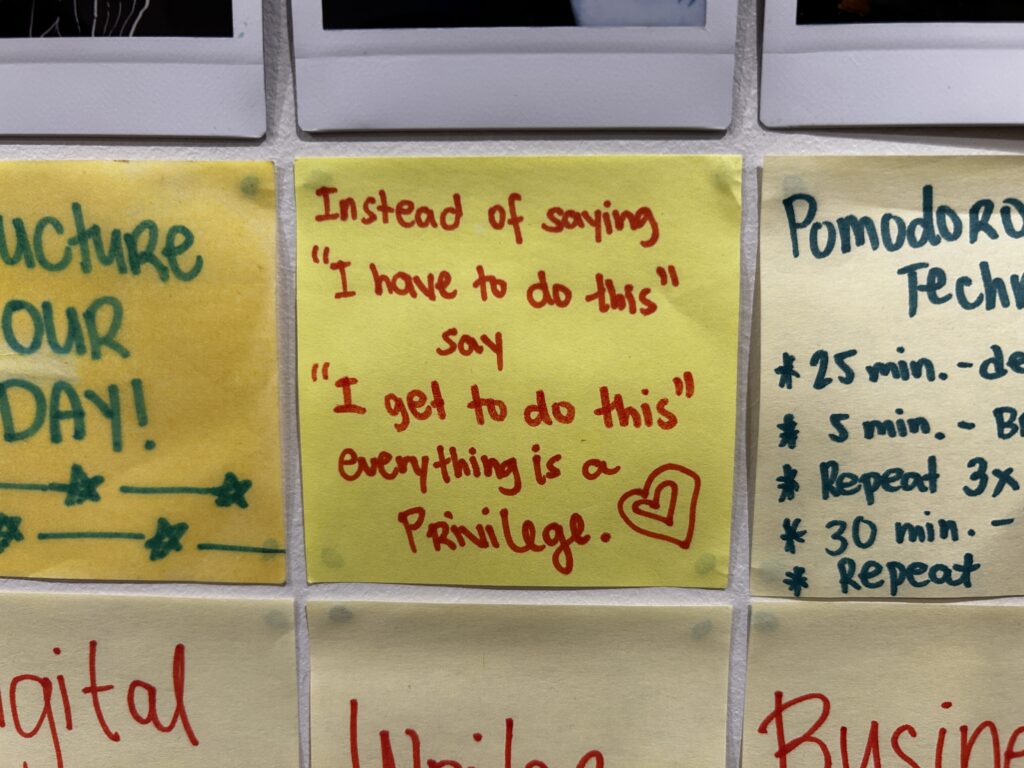 UCTURE
OUR
DAY!
Instead of saying
"I have to do this"
say
"I get to do this"
everything is a
Privilege.
Pomodoro
Techn
* 25 min. - de
* 5 min. - B
* Repeat 3x
* 30 min. -
* Repeat
igital
Write
Busine